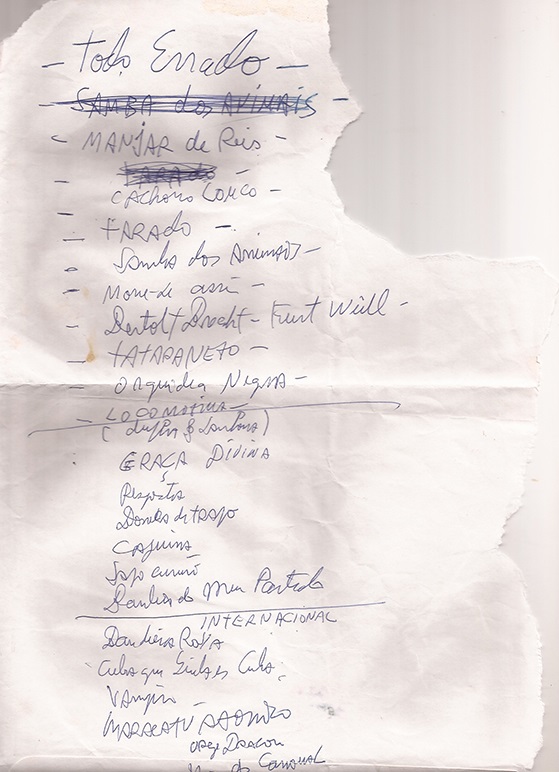 - Todo Errado -
- SAMBA dos ANIMAIS -
- MANJAR de Reis -
TARADO
- CACHORRO LOUCO -
- TARADO -
- Samba dos Animais -
- More-de assi -
- Bertolt Brecht - Kurt Weill -
- TATARANETO -
- Orquidea Negra -
- LOCOMOTIVA -
GRAÇA DIVINA
Resposta
CAJUINA
Sapo cururu
Bandeira do Meu Partido
INTERNACIONAL
Bandiera Rossa
Cuba que linda es Cuba
Vampiro
MARACATU ATOMICO
Jorge DRAGON
Carnaval